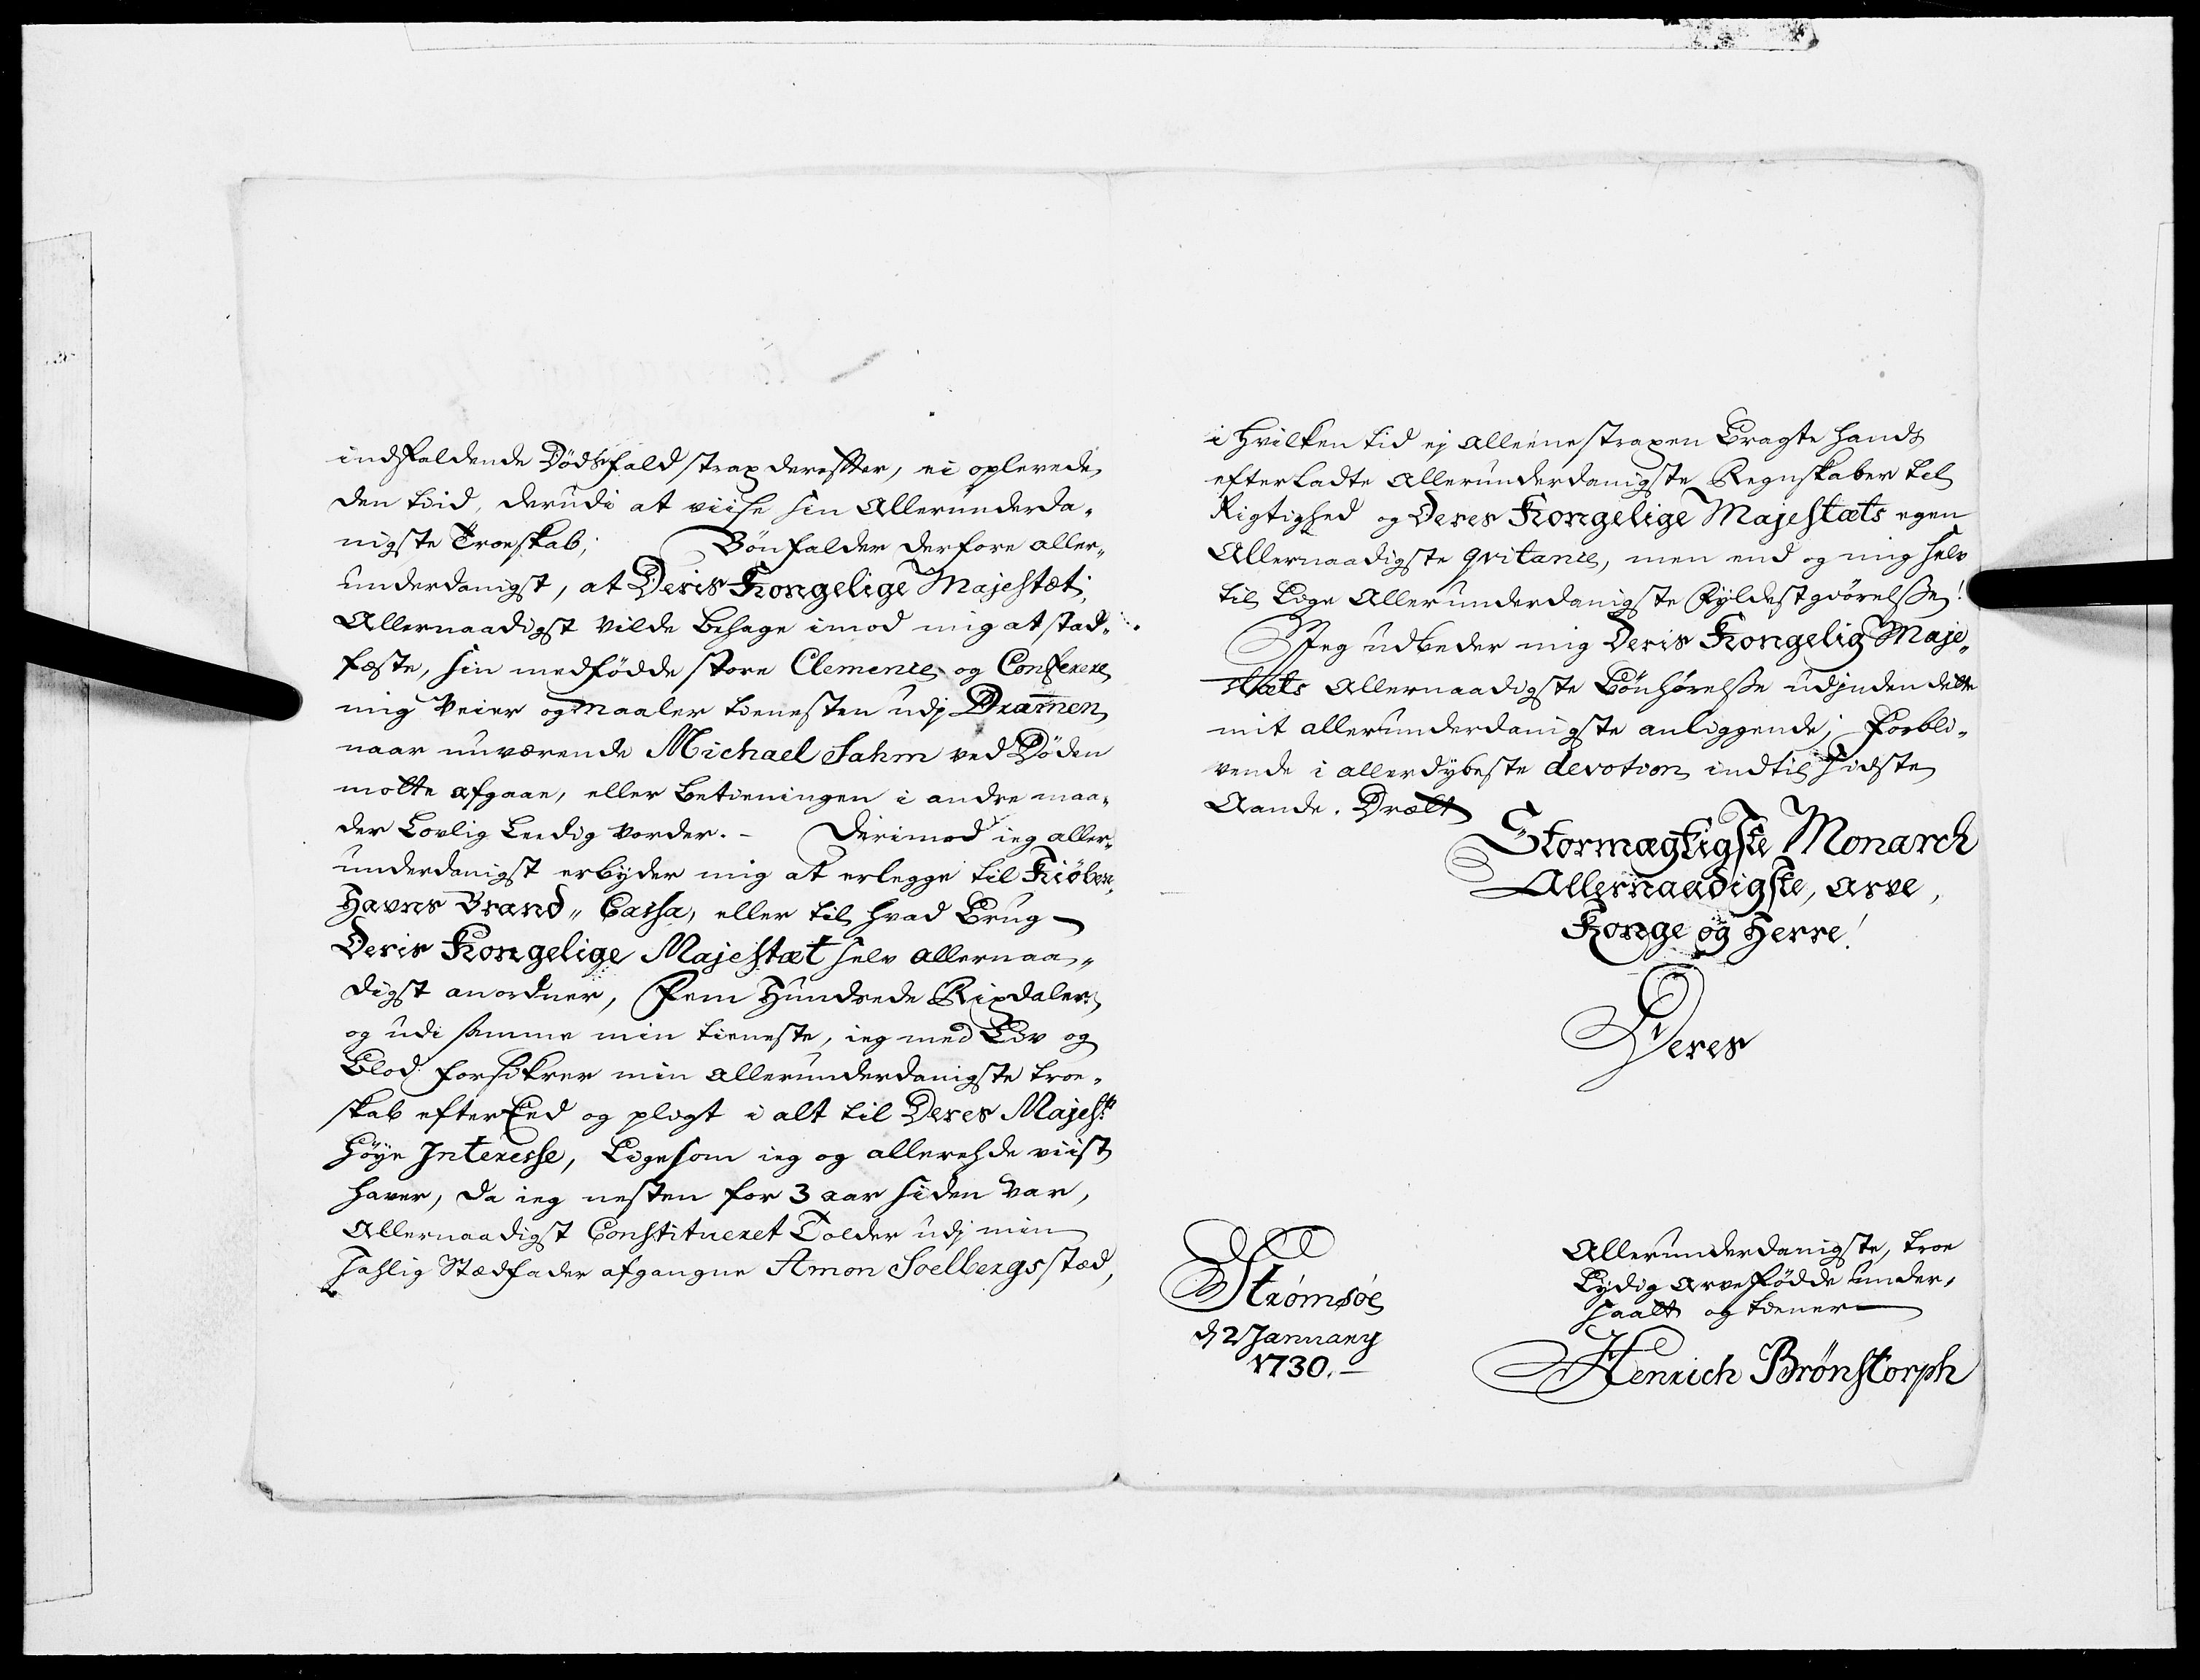 indfaldende Dødsfald strax derefter, ei oplevede
den tiid, derudi at viise sin Allerunderda„
nigste Troeskab; Bønfalder derfore aller„
underdanigst, at Deris Kongelige Majestæt
Allernaadigst vilde behage imod mig at stad„
fæste, sin medfødde store Clemence og Conferere
mig Veier og Maaler tienesten udj Dram̄en,
naar nuværende Michael Sahm ved Døden
motte afgaae, eller betieningen i andre maa„
der Lovlig Leedig vorder. – Derimod ieg aller„
underdanigst erbyder mig at erlegge til Kiøben„
Havns Brand„ Cassa, eller til hvad Brug
Deris Kongelige Majestæt selv allernaa„
digst anordner, Fem Hundrede Rixdaler,
og udi samme min tieneste, ieg med Liv og
Blod forsikrer min allerunderdanigste troe„
skab efter Eed og pligt i alt til Deres Majestts
høye Interesse, Ligesom ieg og allerehde viist
haver, da ieg nesten for 3 aar siden var,
Allernaadigst Constitueret Tolder udj min
Sahlig Stædfader afgangne Amon Soelbergs stæd,
i hvilken tid ej alleene straxen bragte hands
efterladte allerunderdanigste Regnskaber til
Rigtighed og Deres Kongelige Majestæts egen
Allernaadigste qvitance, men end og mig selv
til Lige Allerunderdanigste Fyldestgiørelsse!
Jeg udbeder mig Deris Kongelig Maje„
stæts Allernaadigste Bønhørelsse udjnden dette
mit allerunderdanigste anliggende; Forbli„
vende i allerdybeste devotion indtil sidste
Aande.
Stormægtigste Monarch
Allernaadigste, Arve,
Konge og Herre!
Deres
Strømsøe
d 2 January
1730. –
Allerunderdanigste, troe
Lydig Arve Fødde under„
saatt og tiener
Henrich Brønstorph